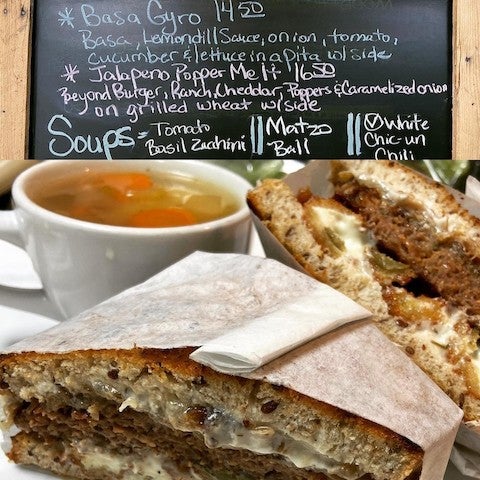 * Basa Gyro 14.50
Basa, Lemondill Sauce, onion, tomato,
cucumber & lettuce in a pita w/ side
* Jalapeno Popper Melt 16.50
Beyond Burger, Ranch, Cheddar, Poppers & Caramelized onion
on grilled wheat w/side
Soups = Tomato Basil Zucchini || Matzo Ball || White Chic-un Chili